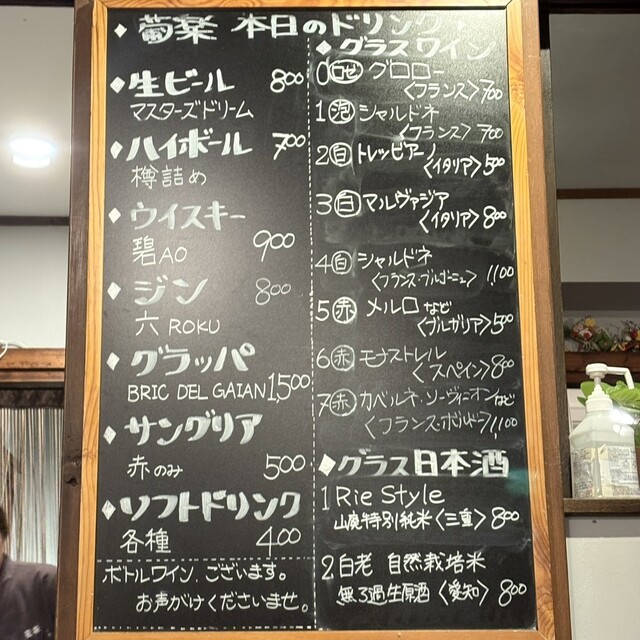 ◆葡楽 本日のドリンク◆
◆生ビール 800
マスターズドリーム
◆ハイボール 700
樽詰め
◆ウイスキー
碧AO 900
◆ジン 800
六 ROKU
◆グラッパ
BRIC DEL GAIAN 1,500
◆サングリア
赤のみ 500
◆ソフトドリンク
各種 400
ボトルワイン、ございます。
お声がけくださいませ。
◆グラスワイン
0ロゼ グロロー
〈フランス〉700
1泡 シャルドネ
〈フランス〉700
2白 トレッビアーノ
〈イタリア〉500
3白 マルヴァジア
〈イタリア〉800
4白 シャルドネ
〈フランス・ブルゴーニュ〉1,100
5赤 メルロなど
〈ブルガリア〉500
6赤 モナストレル
〈スペイン〉800
7赤 カベルネ・ソーヴィニオンなど
〈フランス・ボルドー〉1,100
◆グラス日本酒
1 Rie Style
山廃特別純米〈三重〉800
2 白老 自然栽培米
無ろ過生原酒〈愛知〉800